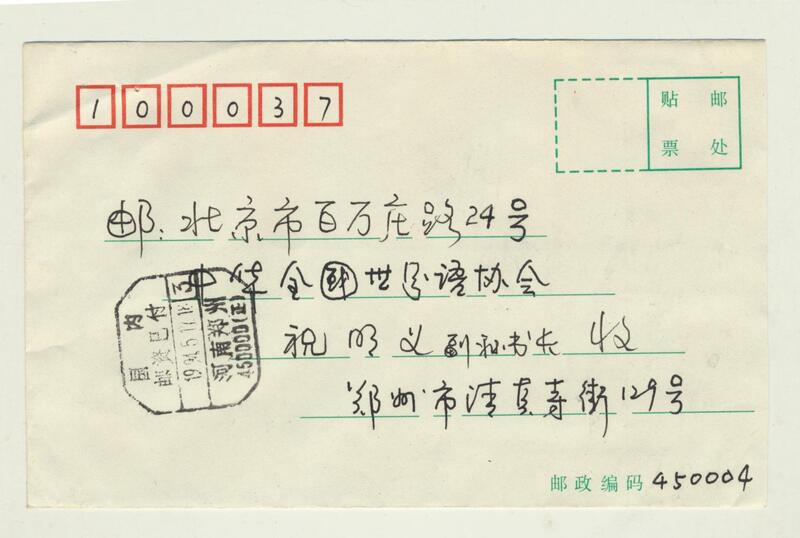 100037
贴 邮
票 处
邮:北京市百万庄路24号
中华全国世界语协会
祝明义副秘书长 收
郑州市清真寺街129号
国内
邮资已付
河南郑州
450000(正)
邮政编码 450004